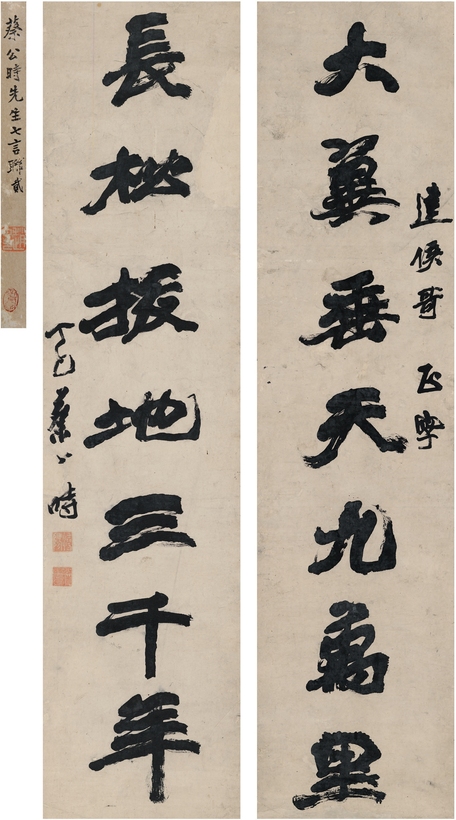 達侯哥 正寧
大翼垂天九萬里
長松拔地三千年
丁巳蔡公時
蔡公時先生七言聯貳